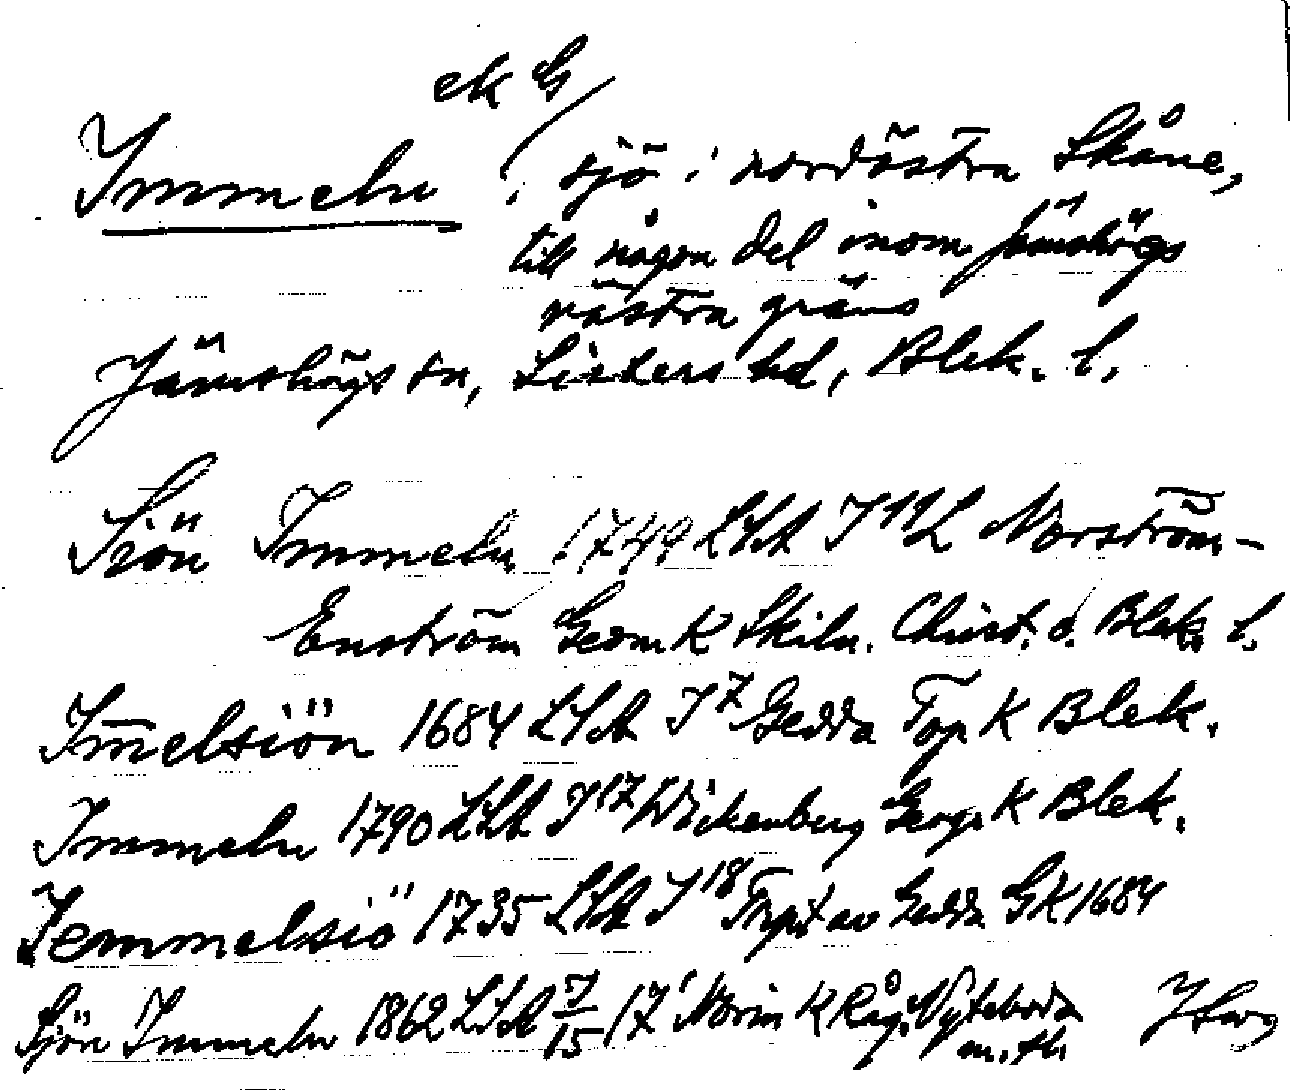 ek G
Immeln, sjö i nordöstra Skåne,
till någon del inom Jämshögs
västra gräns
Jämshögs sn, Listers hd, Blek. l.
Sjön Immeln 1749 LSA I 11 Norström-
Enström Geom K Skiln. Christ. o. Blek. l.
Im̅elsiön 1684 LSA I 7 Gedda Top K Blek.
Immeln 1790 LSA I 17 Wickenberg Geogr K Blek.
Jemmelsiö 1735 LSA I 18 av Gedda GK 1684
Sjön Immeln 1862 LSA 7/15 17 Norin K Råg. Nyteboda
m. fl.